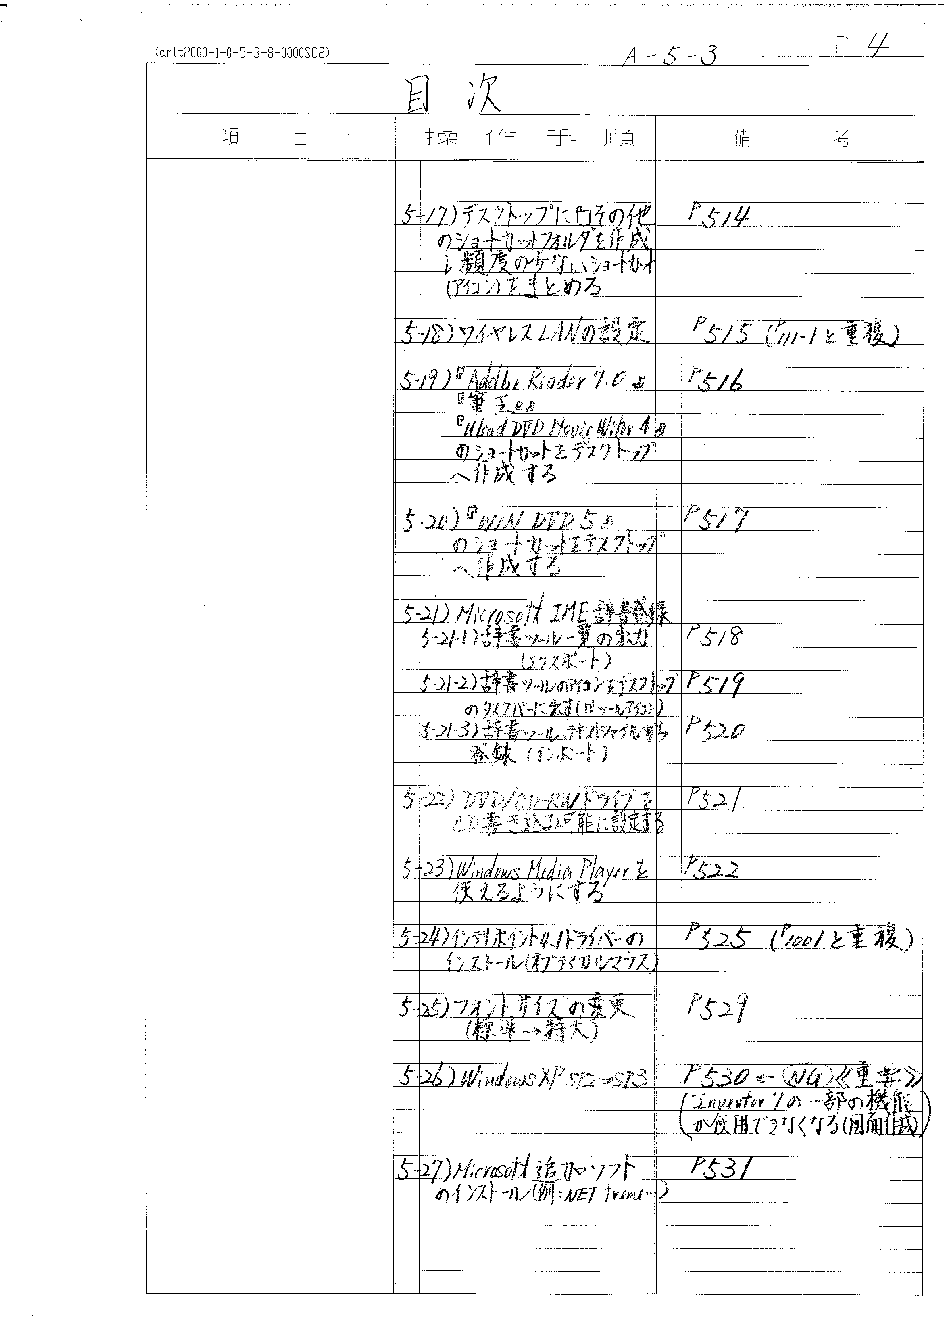 A-5-3
4
目次
項目 操作手順 備考
5-17)デスクトップに『その他 P514
のショートカットフォルダを作成
し頻度の少ないショートカット
(アイコン)をまとめる
5-18)ワイヤレスLANの設定 P515 (P111-1と重複)
5-19)『Adobe Reader 7.0』 P516
『筆王』
『Ulead DVD Movie Writer 4』
のショートカットをデスクトップ
へ作成する
5-20)『WIN DVD 5』 P517
のショートカットをデスクトップ
へ作成する
5-21)Microsoft IME 辞書登録
5-21-1)辞書ツール一覧の出力 P518
(エクスポート)
5-21-2)辞書ツールのアイコンをデスクトップ P519
のタスクバーに
5-21-3)辞書ツール テキストファイル P520
登録(インポート)
5-22)DVD/CD-RWドライブを P521
書き込み可能に設定する
5-23)Windows Media Playerを P522
使えるようにする
5-24)インテリポイント4.1ドライバーの P525 (P1001と重複)
インストール(オプティカルマウス)
5-25)フォントサイズの変更 P529
(標準→特大)
5-26)Windows XP SP2→SP3 P530 ← NG《重要》
(Inventor 7の一部の機能
が使用できなくなる(図面作成))
5-27)Microsoft 追加ソフト P531
のインストール(例:NET frame…)